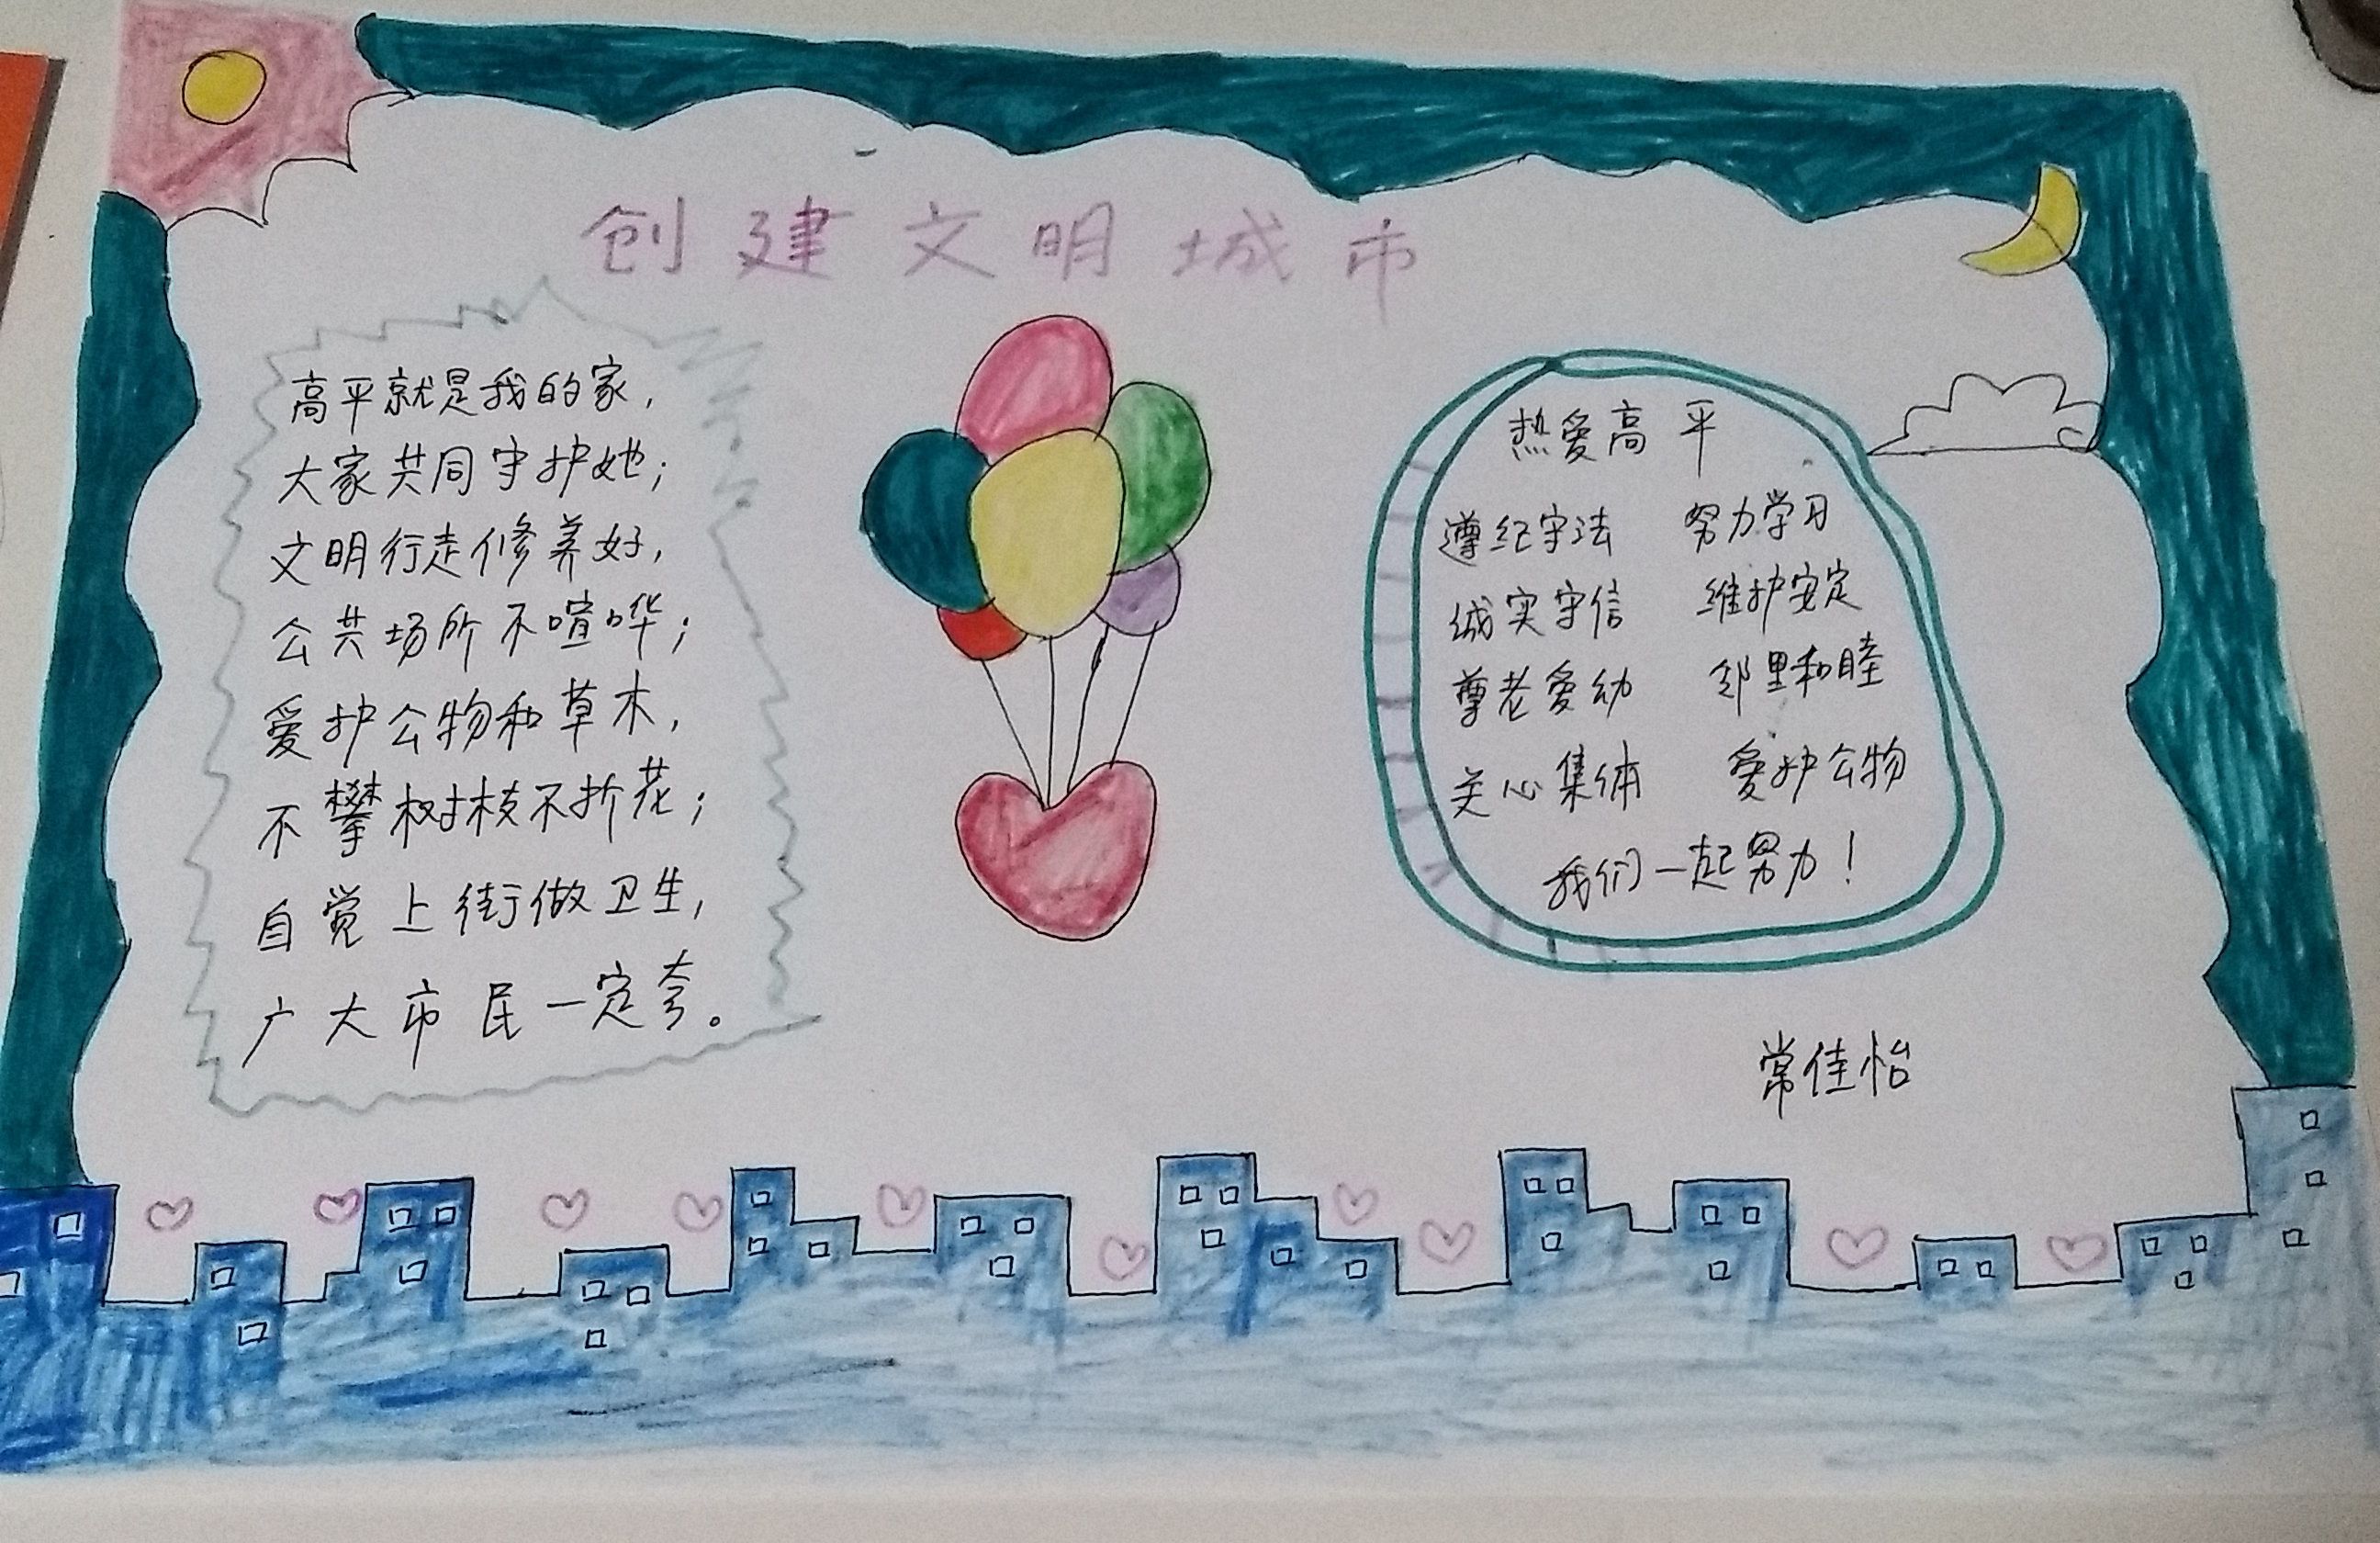 创建文明城市
高平就是我的家，
大家共同守护她；
文明行走修养好，
公共场所不喧哗；
爱护公物和草木，
不攀树枝不折花；
自觉上街做卫生，
广大市民一定夸。
热爱高平
遵纪守法 努力学习
诚实守信 维护安定
尊老爱幼 邻里和睦
关心集体 爱护公物
我们一起努力！
常佳怡